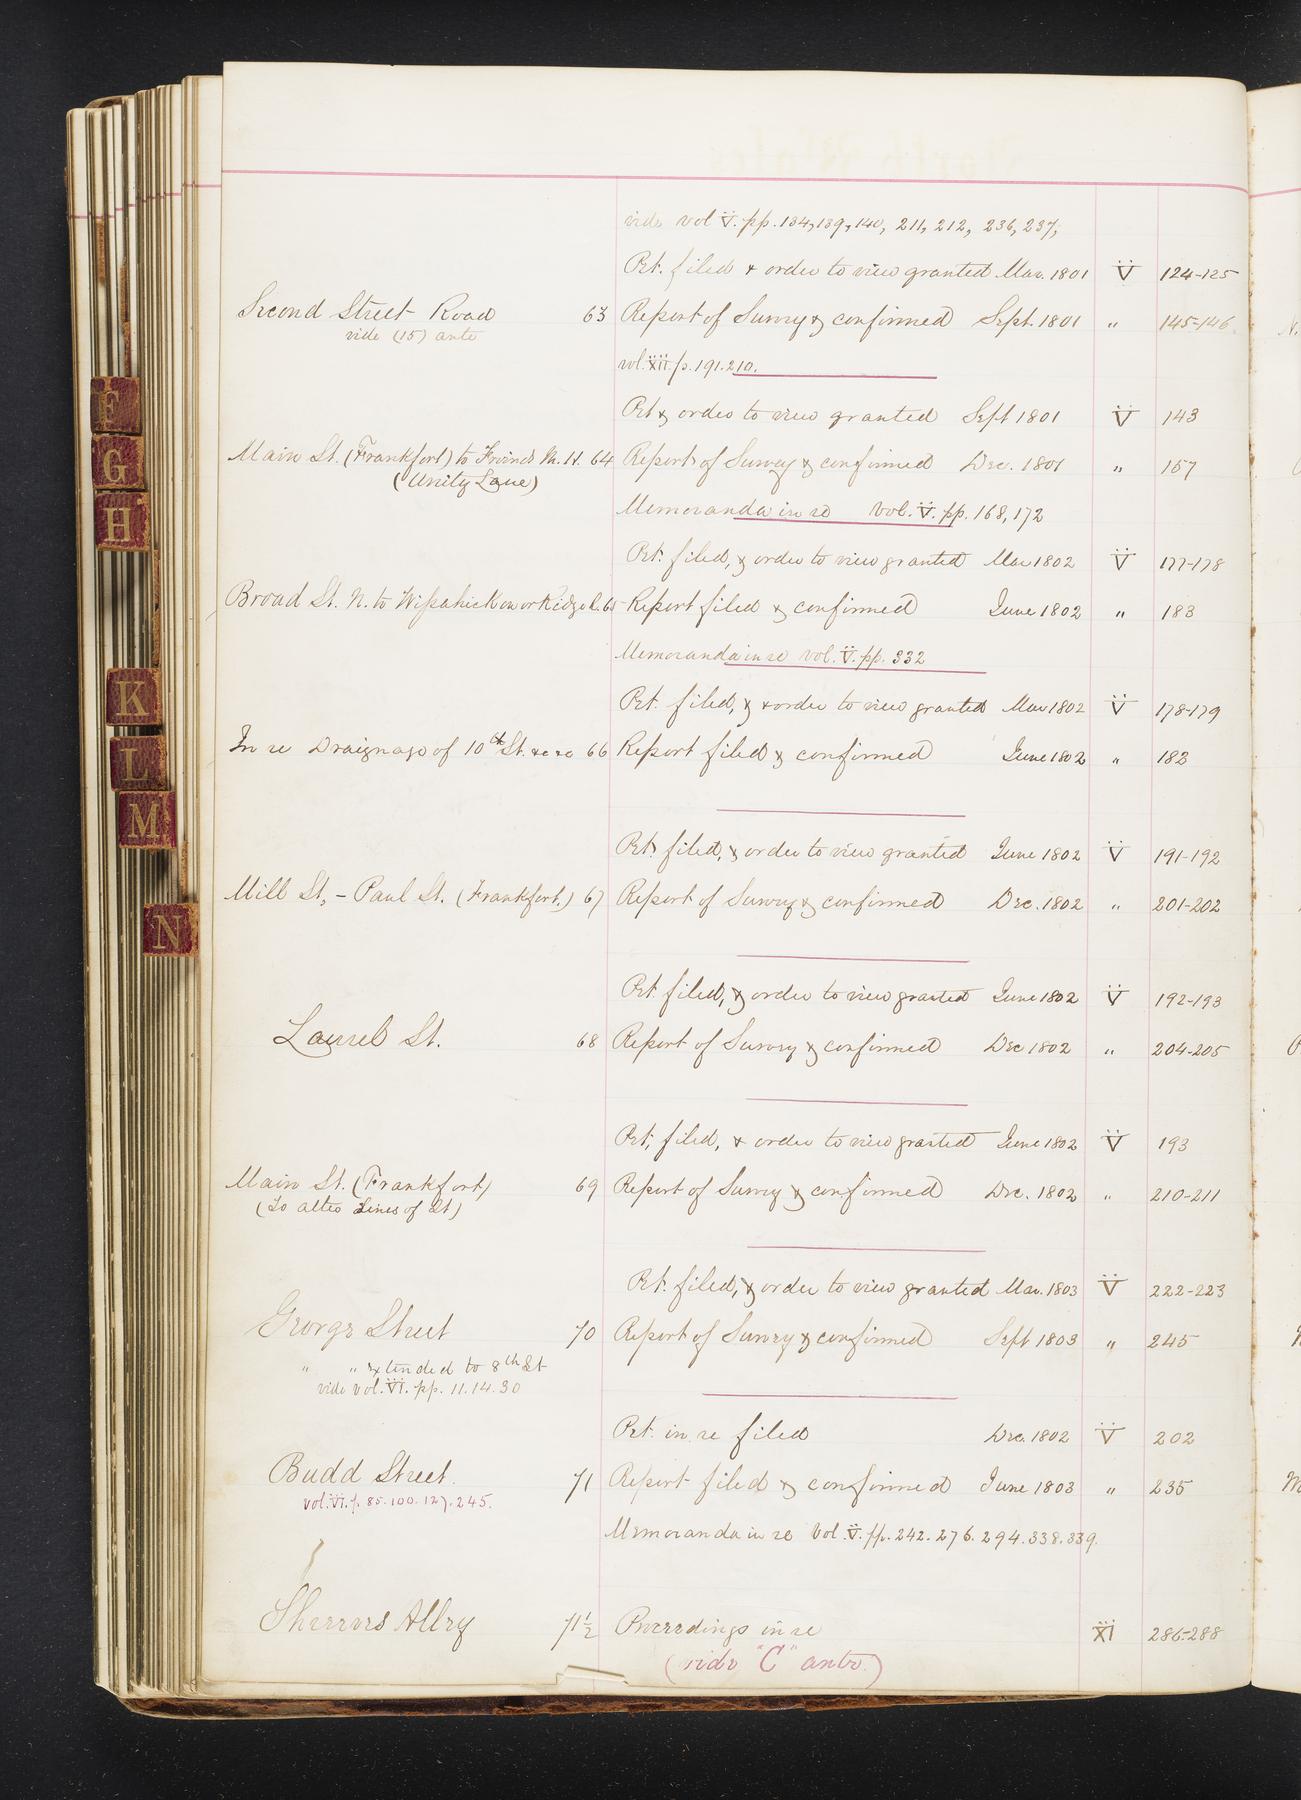 vide vol V. pp. 134, 139, 140, 211, 212, 236, 237,
Pet. filed & order to view granted Mar. 1801 V 124-125
Second Street Road 63 Report of Survey & confirmed Sept. 1801 " 145-146
vide (15) ante
vol. XII p. 191. 210.
Pet & order to view granted Sept 1801 V 143
Main St. (Frankfort) to Friends M. H. 64 Report of Survey & confirmed Dec. 1801 " 157
(Unity Lane)
Memoranda in re Vol. V. pp. 168, 172
Pet. filed, & order to view granted Mar 1802 V 177-178
Broad St. N. to Wissahickon or Ridge R. 65 Report filed & confirmed June 1802 " 183
Memoranda in re vol. V. pp. 332
Pet. filed, & order to view granted Mar 1802 V 178-179
In re Draignage of 10th St. &c 66 Report filed & confirmed June 1802 " 182
Pet. filed, & order to view granted June 1802 V 191-192
Mill St, - Paul St. (Frankfort.) 67 Report of Survey & confirmed Dec. 1802 " 201-202
Pet filed, & order to view granted June 1802 V 192-193
Laurel St. 68 Report of Survey & confirmed Dec 1802 " 204-205
Pet, filed, & order to view granted June 1802 V 193
Main St. (Frankfort) 69 Report of Survey & confirmed Dec. 1802 " 210-211
(To alter Lines of St)
Pet. filed, & order to view granted Mar. 1803 V 222-223
George Street 70 Report of Survey & confirmed Sept 1803 " 245
" " extended to 8th St
vide vol. VI. pp. 11. 14. 30
Pet. in re filed Dec. 1802 V 202
Budd Street. 71 Report filed & confirmed June 1803 " 235
vol. VI. p. 85. 100. 127. 245.
Memoranda in re Vol. V. pp. 242. 276. 294. 338. 339.
Sherrers Alley 71½ Proceedings in re XI 286-288
(vide "C" ante.)
F
G
H
K
L
M
N